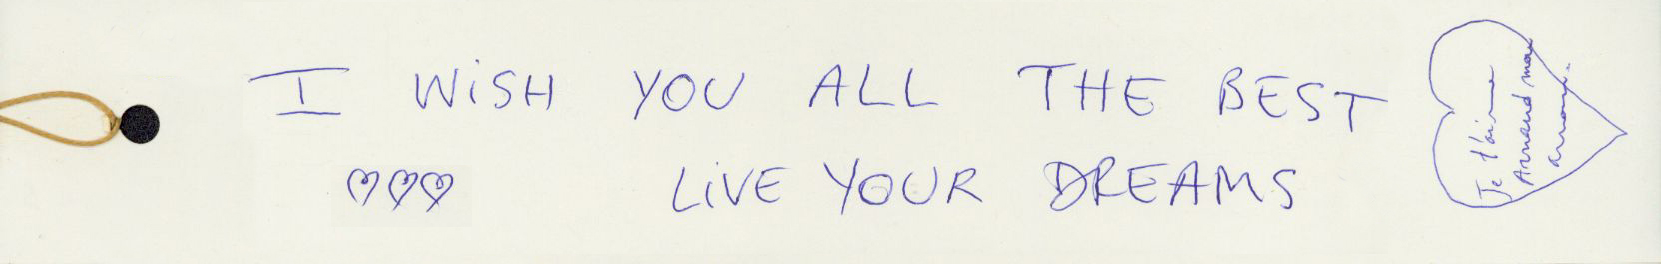 I WiSH YOU ALL THE BEST
♡♡♡ LiVE YOUR DREAMS
Je t'aime
Arnaud mon
amour.